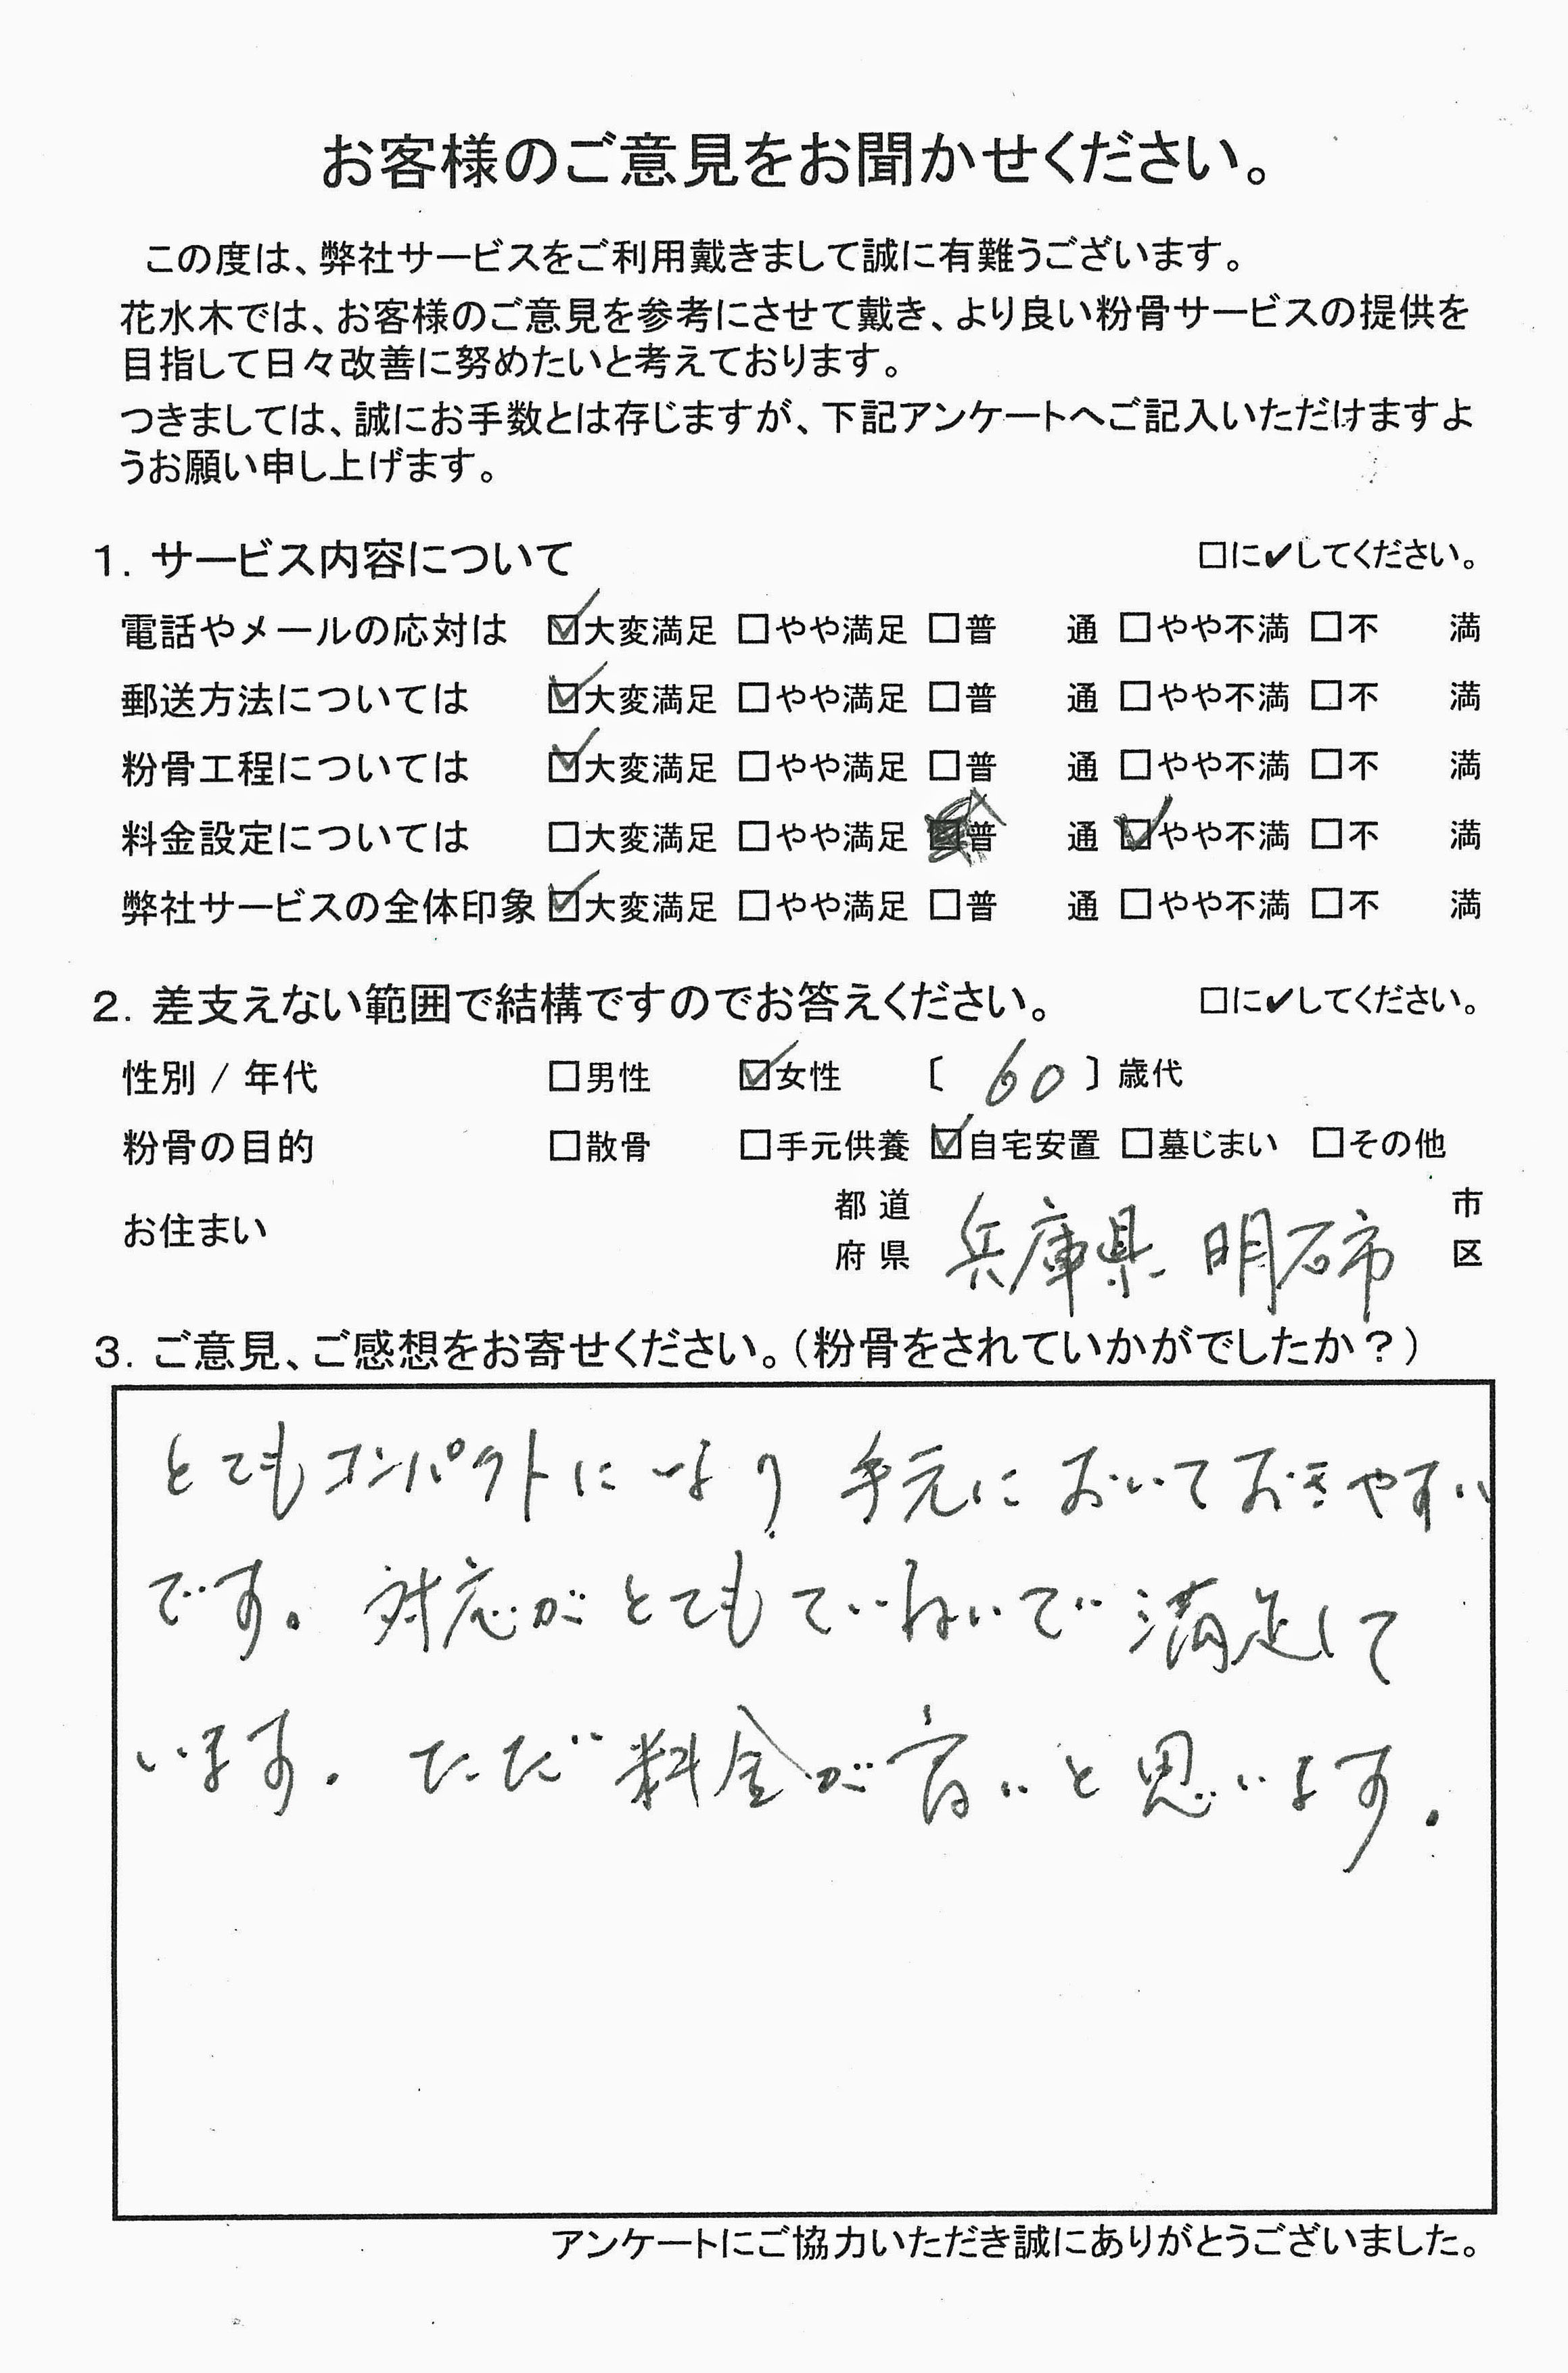 お客様のご意見をお聞かせください。
この度は、弊社サービスをご利用戴きまして誠に有難うございます。
花水木では、お客様のご意見を参考にさせて戴き、より良い粉骨サービスの提供を
目指して日々改善に努めたいと考えております。
つきましては、誠にお手数とは存じますが、下記アンケートへご記入いただけますよ
うお願い申し上げます。
1. サービス内容について □に✔してください。
電話やメールの応対は ☑大変満足 □やや満足 □普 通 □やや不満 □不 満
郵送方法については ☑大変満足 □やや満足 □普 通 □やや不満 □不 満
粉骨工程については ☑大変満足 □やや満足 □普 通 □やや不満 □不 満
料金設定については □大変満足 □やや満足 ■普 通 ☑やや不満 □不 満
弊社サービスの全体印象 ☑大変満足 □やや満足 □普 通 □やや不満 □不 満
2. 差支えない範囲で結構ですのでお答えください。 □に✔してください。
性別 / 年代 □男性 ☑女性 〔 60 〕歳代
粉骨の目的 □散骨 □手元供養 ☑自宅安置 □墓じまい □その他
お住まい 都道府県 兵庫県 明石市 市区
3. ご意見、ご感想をお寄せください。(粉骨をされていかがでしたか？)
とてもコンパクトになり 手元においておきやすい
です。対応がとてもていねいで満足して
います。ただ料金が高いと思います。
アンケートにご協力いただき誠にありがとうございました。